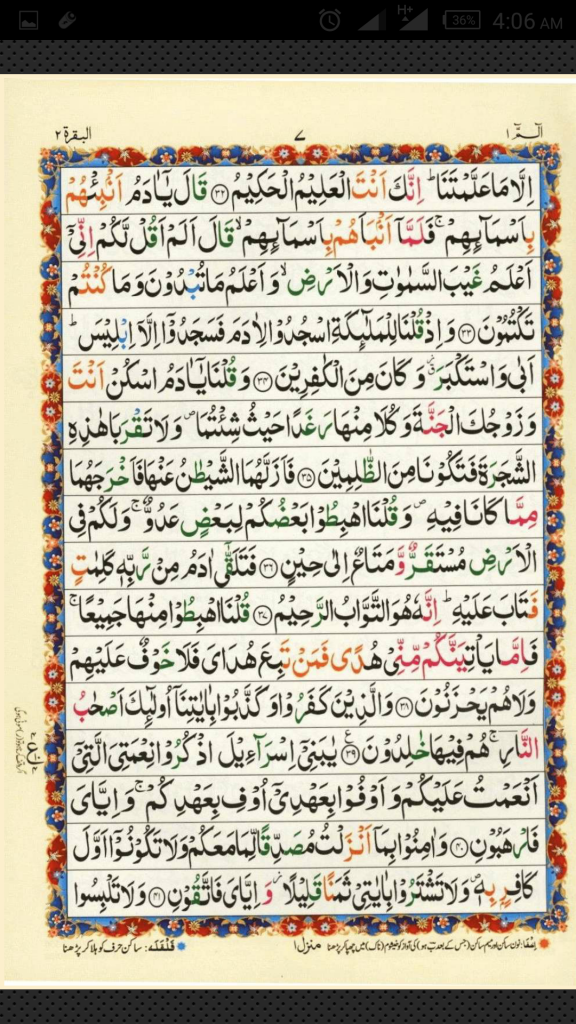 H+ 36% 4:06 AM
الٓمّٓ ١ ٧ البقرة ٢
اِلَّا مَا عَلَّمْتَنَا ؕ اِنَّكَ اَنْتَ الْعَلِيْمُ الْحَكِيْمُ ﴿۳۲﴾ قَالَ يٰۤاٰدَمُ اَنْۢبِئْهُمْ
بِاَسْمَآئِهِمْ ۚ فَلَمَّاۤ اَنْۢبَاَهُمْ بِاَسْمَآئِهِمْ ۙ قَالَ اَلَمْ اَقُلْ لَّكُمْ اِنِّيْۤ
اَعْلَمُ غَيْبَ السَّمٰوٰتِ وَالْاَرْضِ ۙ وَ اَعْلَمُ مَا تُبْدُوْنَ وَمَا كُنْتُمْ
تَكْتُمُوْنَ ﴿۳۳﴾ وَ اِذْ قُلْنَا لِلْمَلٰٓئِكَةِ اسْجُدُوْا لِاٰدَمَ فَسَجَدُوْۤا اِلَّاۤ اِبْلِيْسَ ؕ
اَبٰى وَاسْتَكْبَرَ ٭۫ وَ كَانَ مِنَ الْكٰفِرِيْنَ ﴿۳۴﴾ وَ قُلْنَا يٰۤاٰدَمُ اسْكُنْ اَنْتَ
وَ زَوْجُكَ الْجَنَّةَ وَ كُلَا مِنْهَا رَغَدًا حَيْثُ شِئْتُمَا ۪ وَلَا تَقْرَبَا هٰذِهِ
الشَّجَرَةَ فَتَكُوْنَا مِنَ الظّٰلِمِيْنَ ﴿۳۵﴾ فَاَزَلَّهُمَا الشَّيْطٰنُ عَنْهَا فَاَخْرَجَهُمَا
مِمَّا كَانَا فِيْهِ ۪ وَ قُلْنَا اهْبِطُوْا بَعْضُكُمْ لِبَعْضٍ عَدُوٌّ ۚ وَ لَكُمْ فِي
الْاَرْضِ مُسْتَقَرٌّ وَّ مَتَاعٌ اِلٰى حِيْنٍ ﴿۳۶﴾ فَتَلَقّٰۤى اٰدَمُ مِنْ رَّبِّهٖ كَلِمٰتٍ
فَتَابَ عَلَيْهِ ؕ اِنَّهٗ هُوَ التَّوَّابُ الرَّحِيْمُ ﴿۳۷﴾ قُلْنَا اهْبِطُوْا مِنْهَا جَمِيْعًا ۚ
فَاِمَّا يَاْتِيَنَّكُمْ مِّنِّيْ هُدًى فَمَنْ تَبِعَ هُدَايَ فَلَا خَوْفٌ عَلَيْهِمْ
وَلَا هُمْ يَحْزَنُوْنَ ﴿۳۸﴾ وَالَّذِيْنَ كَفَرُوْا وَ كَذَّبُوْا بِاٰيٰتِنَاۤ اُولٰٓئِكَ اَصْحٰبُ
النَّارِ ۚ هُمْ فِيْهَا خٰلِدُوْنَ ﴿۳۹﴾ يٰبَنِيْۤ اِسْرَآءِيْلَ اذْكُرُوْا نِعْمَتِيَ الَّتِيْۤ
اَنْعَمْتُ عَلَيْكُمْ وَ اَوْفُوْا بِعَهْدِيْۤ اُوْفِ بِعَهْدِكُمْ ۚ وَ اِيَّايَ
فَارْهَبُوْنِ ﴿۴۰﴾ وَ اٰمِنُوْا بِمَاۤ اَنْزَلْتُ مُصَدِّقًا لِّمَا مَعَكُمْ وَلَا تَكُوْنُوْۤا اَوَّلَ
كَافِرٍۭ بِهٖ ۪ وَلَا تَشْتَرُوْا بِاٰيٰتِيْ ثَمَنًا قَلِيْلًا ۫ وَّ اِيَّايَ فَاتَّقُوْنِ ﴿۴۱﴾ وَلَا تَلْبِسُوا
منزل ۱
قَلْقَلَه: ساکن حرف کو ہلا کر پڑھنا